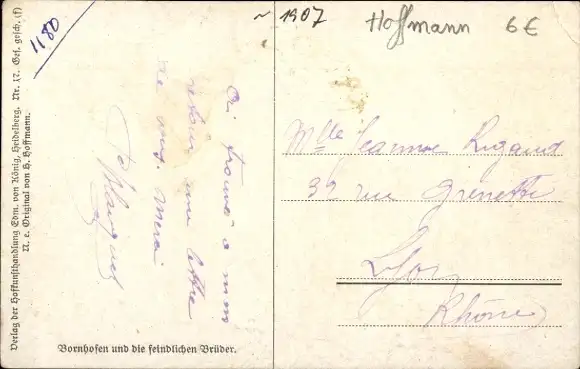 1180
~ 1907
Hoffmann 6€
Verlag der Hofkunsthandlung Edm. von König, Heidelberg. Nr. 17. Ges. gesch. (f)
N. e. Original von H. Hoffmann.
trouvé à mon
retour une lettre
de
Mlle Jeanne Rigaud
32 rue Grenette
Lyon
Rhône
Bornhofen und die feindlichen Brüder.